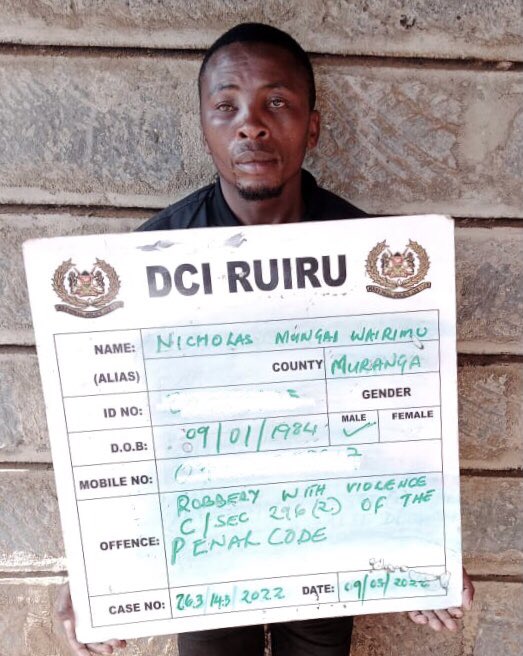 DCI RUIRU
NAME: NICHOLAS MUNGAI WAIRIMU
(ALIAS) COUNTY MURANGA
ID NO: GENDER
D.O.B: 09/01/1984 MALE ✓ FEMALE
MOBILE NO:
OFFENCE: ROBBERY WITH VIOLENCE
C/SEC 296(2) OF THE
PENAL CODE
CASE NO: 263/143/2022 DATE: 09/03/2022